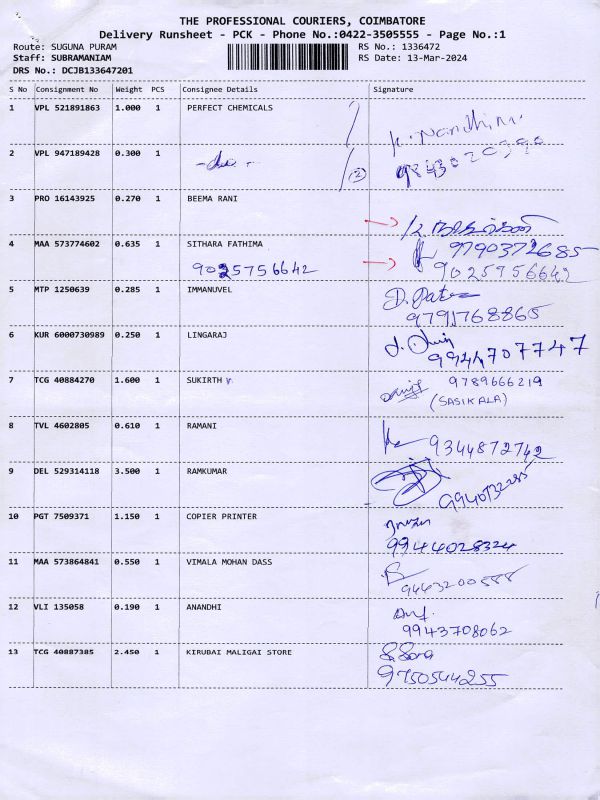 THE PROFESSIONAL COURIERS, COIMBATORE
Delivery Runsheet - PCK - Phone No.:0422-3505555 - Page No.:1
Route: SUGUNA PURAM RS No.: 1336472
Staff: SUBRAMANIAM RS Date: 13-Mar-2024
DRS No.: DCJB133647201
S No Consignment No Weight PCS Consignee Details Signature
1 VPL 521891863 1.000 1 PERFECT CHEMICALS
K. Nandhini
2 VPL 947189428 0.300 1
(2)
3 PRO 16143925 0.270 1 BEEMA RANI
9790372685
4 MAA 573774602 0.635 1 SITHARA FATHIMA
9025756642 9025756642
5 MTP 1250639 0.285 1 IMMANUVEL
9791768865
6 KUR 6000730989 0.250 1 LINGARAJ
9944707747
7 TCG 40884270 1.600 1 SUKIRTH 9789666219
(SASIKALA)
8 TVL 4602805 0.610 1 RAMANI
9344872742
9 DEL 529314118 3.500 1 RAMKUMAR
10 PGT 7509371 1.150 1 COPIER PRINTER
9944028324
11 MAA 573864841 0.550 1 VIMALA MOHAN DASS
9443200588
12 VLI 135058 0.190 1 ANANDHI
9943708062
13 TCG 40887385 2.450 1 KIRUBAI MALIGAI STORE
9750544255